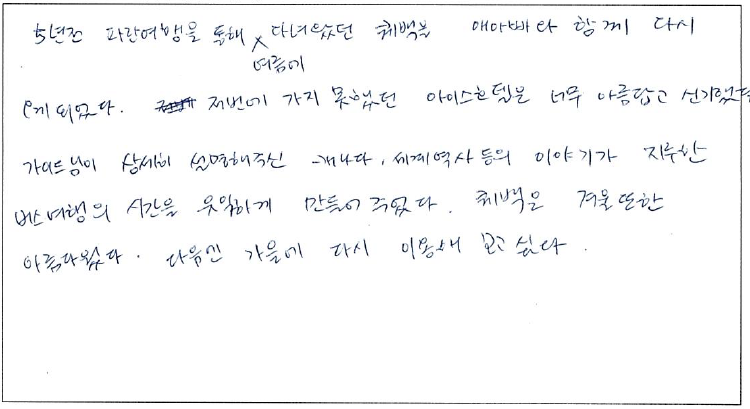 5년전 파란여행을 통해 다녀왔던 퀘백을 애아빠와 함께 다시
여름에
오게 되었다. 저번에 가지 못했던 아이스호텔은 너무 아름답고 신기했고
가이드님이 상세히 설명해주신 캐나다, 세계역사 등의 이야기가 지루한
버스여행의 시간을 유익하게 만들어 주었다. 퀘백은 겨울또한
아름다웠다. 다음엔 가을에 다시 이용해 보고 싶다.